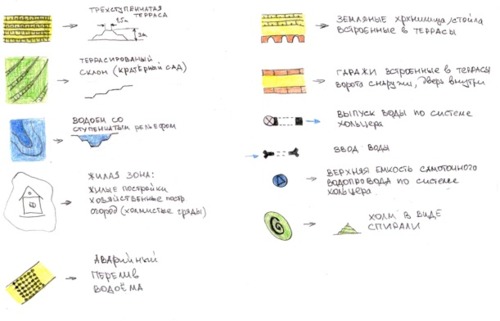 ТРЁХСТУПЕНЧАТАЯ
ТЕРРАСА
ТЕРРАСИРОВАНЫЙ
СКЛОН (КРАТЕРНЫЙ САД)
ВОДОЕМ СО
СТУПЕНЧАТЫМ РЕЛЬЕФОМ
ЖИЛАЯ ЗОНА:
ЖИЛЫЕ ПОСТРОЙКИ
ХОЗЯЙСТВЕННЫЕ ПОСТР.
ОГОРОД (ХОЛМИСТЫЕ ГРЯДЫ)
АВАРИЙНЫЙ
ПЕРЕЛИВ
ВОДОЁМА
ЗЕМЛЯНЫЕ ХРАНИЛИЩА/СТОЙЛА
ВСТРОЕННЫЕ В ТЕРРАСЫ
ГАРАЖИ ВСТРОЕННЫЕ В ТЕРРАСЫ
ВОРОТА СНАРУЖИ, ДВЕРЬ ВНУТРИ
ВЫПУСК ВОДЫ ПО СИСТЕМЕ
ХОЛЬЦЕРА
ВВОД ВОДЫ
ВЕРХНЯЯ ЕМКОСТЬ САМОТОЧНОГО
ВОДОПРОВОДА ПО СИСТЕМЕ
ХОЛЬЦЕРА
ХОЛМ В ВИДЕ
СПИРАЛИ